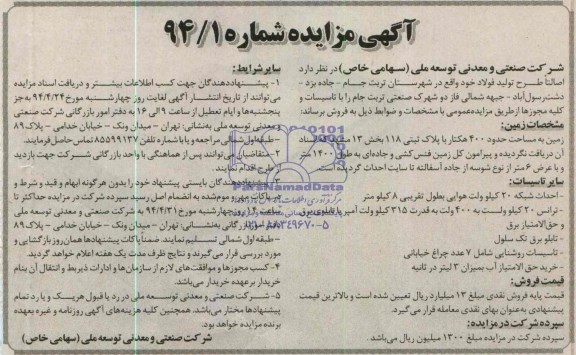 آگهی مزایده شماره ۹۴/۱
شرکت صنعتی و معدنی توسعه ملی (سهامی خاص) در نظر دارد
اصالتاً طرح تولید فولاد خود واقع در شهرستان تربت جام - جاده یزد -
دشت رسول‌آباد - جبهه شمالی فاز دو شهرک صنعتی تربت جام را با تاسیسات و
کلیه مجوزها از طریق مزایده عمومی با مشخصات و ضوابط ذیل به فروش برساند:
مشخصات زمین:
زمین به مساحت حدود ۴۰۰ هکتار با پلاک ثبتی ۱۱۸ بخش ۱۳
آن دریافت نگردیده و پیرامون کل زمین فنس‌کشی و جاده‌ای به طول ۱۴۰۰ متر
و با عرض ۶ متر از نوع شوسه از جاده آسفالته تا سایت احداث گردیده است.
سایر تاسیسات:
- احداث شبکه ۲۰ کیلو ولت هوایی بطول تقریبی ۸ کیلو متر
- ترانس ۲۰ کیلو ولت به ۴۰۰ ولت به قدرت ۳۱۵ کیلو ولت آمپر با تابلو برق
و حق‌الامتیاز برق
- تابلو برق تک سلول
- تاسیسات روشنایی شامل ۷ عدد چراغ خیابانی
- خرید حق الامتیاز آب بمیزان ۳ لیتر در ثانیه
قیمت فروش:
قیمت پایه فروش نقدی مبلغ ۱۳ میلیارد ریال تعیین شده است و بالاترین قیمت
پیشنهادی به‌عنوان بهای نقدی معامله قرار می‌گیرد.
سپرده شرکت در مزایده:
سپرده شرکت در مزایده مبلغ ۱۳۰۰ میلیون ریال می‌باشد.
سایر شرایط:
۱- پیشنهاددهندگان جهت کسب اطلاعات بیشتر و دریافت اسناد مزایده
می‌توانند از تاریخ انتشار آگهی لغایت روز چهارشنبه مورخ ۹۴/۴/۲۴ به جز
پنجشنبه‌ها و ایام تعطیل از ساعت ۹ الی ۱۶ به دفتر امور بازرگانی شرکت صنعتی
و معدنی توسعه ملی به‌نشانی: تهران - میدان ونک - خیابان خدامی - پلاک ۸۹
- طبقه اول شمالی مراجعه و یا با شماره تلفن ۸۵۵۹۹۱۳۷ تماس حاصل فرمایند.
۲- متقاضیان می‌توانند پس از هماهنگی با واحد بازرگانی شرکت جهت بازدید
طرح اقدام نمایند.
۳- پیشنهاددهندگان بایستی پیشنهاد خود را بدون هرگونه ابهام و قید و شرط و
در پاکات مهر و موم شده به انضمام اصل رسید سپرده شرکت در مزایده حداکثر تا
ساعت ۱۶ روز چهارشنبه مورخ ۹۴/۴/۳۱ به شرکت صنعتی و معدنی توسعه ملی
امور بازرگانی به‌نشانی: تهران - میدان ونک - خیابان خدامی - پلاک ۸۹
- طبقه اول شمالی تسلیم نمایند. ضمناً پاکات پیشنهادها همان روز بازگشایی و
مورد بررسی قرار می‌گیرند و نتایج ظرف مدت یک هفته اعلام خواهد گردید.
۴- کسب مجوزها و موافقت‌های لازم از سازمان‌ها و ادارات ذیربط و انتقال آن بنام
خریدار بر عهده خریدار می‌باشد.
۵- شرکت صنعتی و معدنی توسعه ملی در رد یا قبول هریک و یا رد تمام
پیشنهادها مختار می‌باشد. همچنین کلیه هزینه‌های آگهی روزنامه و غیره بعهده
برنده مزایده خواهد بود.
شرکت صنعتی و معدنی توسعه ملی (سهامی خاص)
ParsNamadData
۰۲۱-۸۸۳۴۹۶۷۰-۵